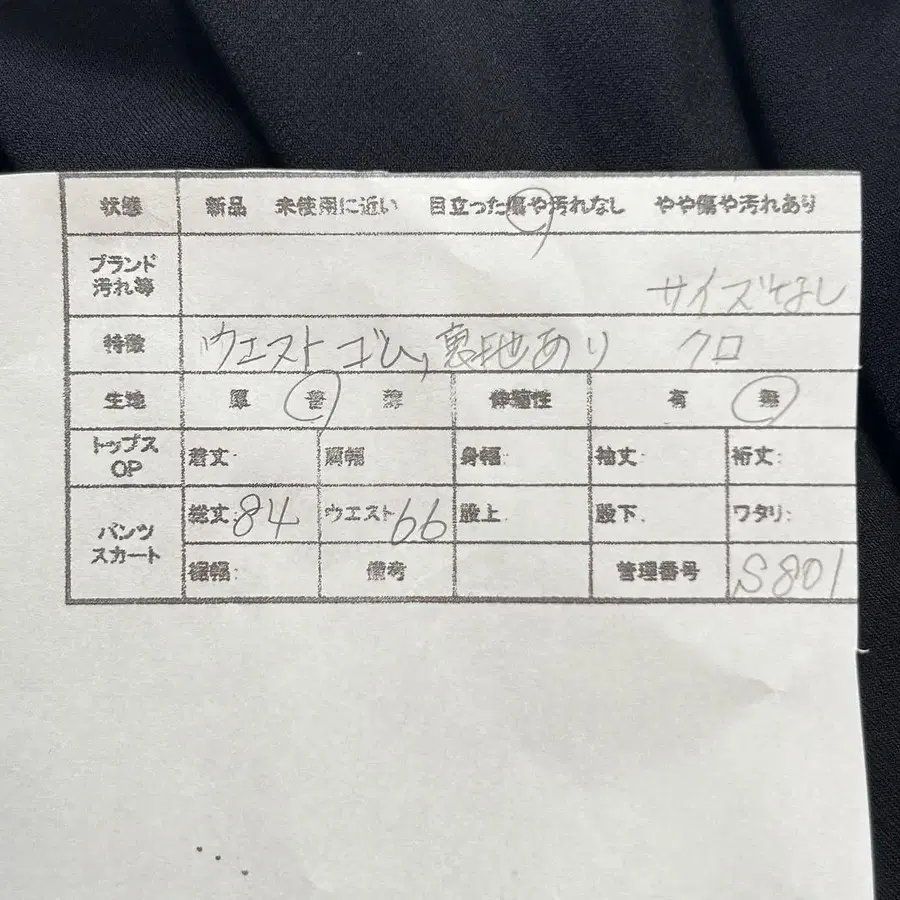 状態 新品 未使用に近い 目立った傷や汚れなし やや傷や汚れあり
ブランド
汚れ等 サイズなし
特徴 ウエストゴム, 裏地あり クロ
生地 厚 普 薄 伸縮性 有 無
トップス
OP 着丈: 肩幅 身幅: 袖丈: 裄丈:
パンツ
スカート 総丈: 84 ウエスト 66 股上: 股下: ワタリ:
裾幅: 備考 管理番号 S801